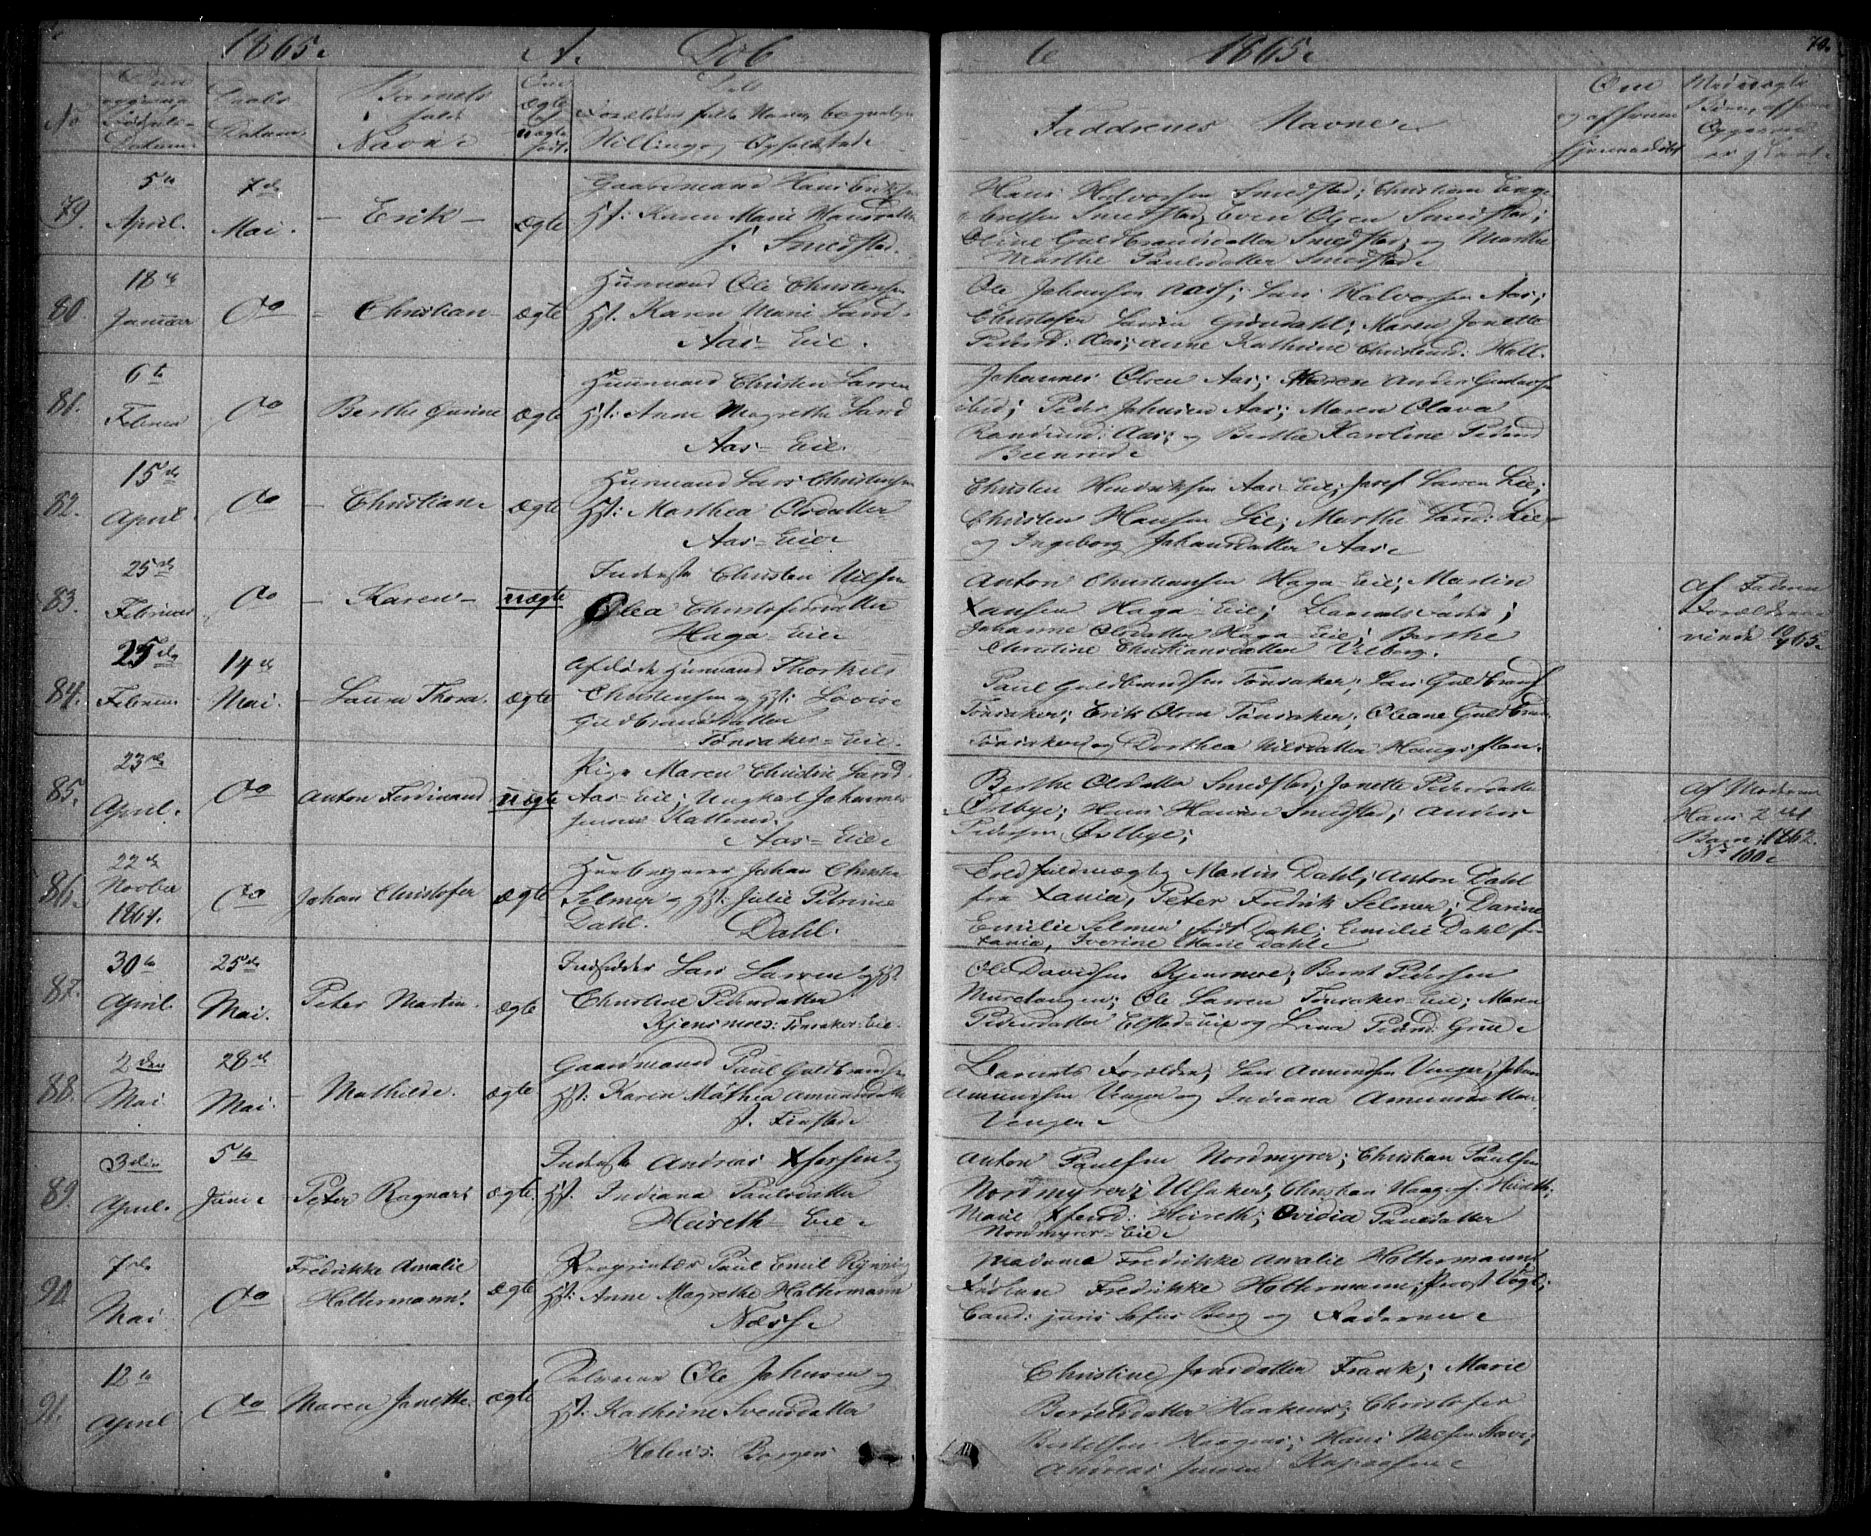 1865. A. Døb
e 1865. 70.
No
Fødsels-
Datum.
Daabs-
Datum.
Barnets
fulde
Navn.
ægte
uægte
Faddrenes Navne.
79. 5te April. 7de Mai. Erik ægte
Gaardmand Hans Eriksen
Hst: Karen Marie Hansdatter
Smedstad.
Hans Halvorsen Smedstad; Christian Enge-
bretsen Smedstad, Even Olsen Smedstad;
Oline Guldbrandsdatter Smedstad; og Marthe
Marthe Paulsdatter Smedstad.
80. 18de Januar do Christian ægte
Huusmand Ole Christensen
Hst. Karen Marie Larsd.
Aas-Eie.
Ole Johansen Aas; Lars Halvorsen Aas;
Christofer Larsen Grøndahl; Maren Jonette
Pedersd: Aas; Anne Kathrine Christensd: Holt.
81. 6te Februar do Berthe Gurine ægte
Huusmand Christen Larsen
Hst: Anne Magrethe Larsd.
Aas-Eie.
Johannes Olsen Aas; Anders Gulbrandsen
ibid; Peder Johnsen Aas; Maren Olava
Aas; og Berthe Karoline Pedersd.
82. 15de April do Christian ægte
Huusmand Lars Christensen
Hst: Marthea Olsdatter
Aas-Eie
Christen Hendriksen Aas-Eie; Josef Larsen Lie;
Christen Hansen Lie; Marthe Larsd: Lie
og Ingeborg Johansdatter Aas.
83. 25de Februar do Karen uægte
Inderste Christen Nilsen
Olea Christofersdatter
Haga-Eie
Anton Christiansen Haga-Eie; Martin
Hansen Haga-Eie; Barnets Fader;
Johanne Olsdatter Haga-Eie; Berthe
Christine Christiansdatter Viberg.
Af Faderen
Forældrene
viede 1865.
84. 25de Februar 14de Mai. Laura Thora. ægte
Afdøde Huusmand Thorkel
Christensen og Hst: Lovise
Guldbrandsdatter
Tønsaker-Eie.
Paul Guldbrandsen Tønsaker; Lars Guldbrands.
Tønsaker; Erik Olsen Tønsaker; Oleane Guldbrands.
Tønsaker og Dorthea Nilsdatter Haugsflan.
85. 23de April. do Anton Ferdinand uægte
Pige Maren Christine Larsd.
Aas-Eie; Ungkarl Johannes
Jensen
Aas-Eie
Berthe Olsdatter Smedstad; Jonette Pedersdatter
Østbye; Hans Hansen Smedstad; Anders
Pedersen Østbye;
Af Moderen
Hans 2det
Barn; 1862.
No 100.
86. 22de Novber 1864. do Johan Christofer ægte
Johan Christian
Selmer og Hst: Julie Petrine
Dahl. Dahl.
Martin Dahl; Anton Dahl
fra Xania, Peter Fredrik Selmer; Darine
Emilie Selmer født Dahl; Emilie Dahl fra
Xania, Severine Marie Dahl.
87. 30te April. 25de Mai. Peter Martin. ægte
Indsidder Lars Larsen og Hst.
Christine Pedersdatter
Kjensmoe: Tønsaker-Eie.
Ole Davidsen Kjensmoe; Bernt Pedersen
Murstangen; Ole Larsen Tønsaker-Eie; Maren
Pedersdatter Elstad-Eie og Lena Pedersd: Grue
88. 2den Mai. 28de Mai. Mathilde. ægte
Gaardmand Paul Guldbrandsen
Hst: Karen Mathea Amundsdatter
Finstad.
Barnets Forældre, Lars Amundsen Vinger, Johan
Amundsen Vinger og Indiana Amundsdatter
Vinger.
89. 3die April. 5te Juni. Peter Ragnar ægte.
Inderste Andreas Xfersen og
Hst. Indiana Paulsdatter
Heireth-Eie
Anton Paulsen Nordmyrer; Christian Paulsen
Nordmyrer; Ulsaker; Christian Heireth;
Marie Xfersd: Heireth; Ovidia Paulsdatter
Nordmyrer-Eie
90. 7de Mai do Fredrikke Amalie Holtermann. ægte
Proprietær Paul Emil Rynning
Hst: Anne Magrethe Holtermann
Næss.
Madame Fredrikke Amalie Holtermann,
Frøken Fredrikke Holtermann; Provst Vogt;
Cand: juris Sofus Berg og Faderen
91. 12te April do Maren Janette. ægte
Ole Johnsen og
Hst: Kathrine Svendsdatter
Borgen
Christine Jensdatter Frank; Marie
Bertelsdatter Haakens; Christofer
Bertelsen Haagens; Hans Nilsen Stave;
Andreas Jensen